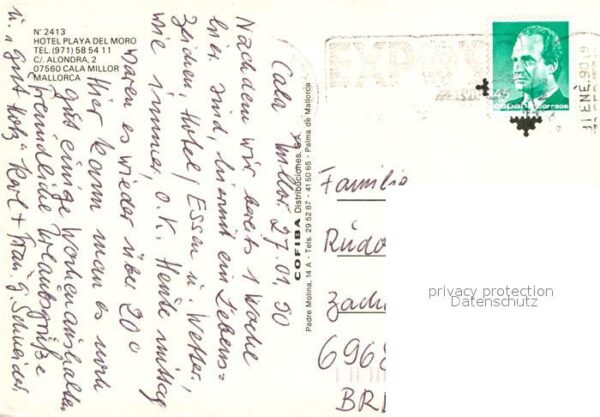 Nº 2413
HOTEL PLAYA DEL MORO
TEL. (971) 58 54 11
C/. ALONDRA, 2
07560 CALA MILLOR
MALLORCA
Cala Millor 27.01.90
Nachdem wir bereits 1 Woche
hier sind, hiermit ein Lebens=
zeichen. Hotel, Essen u. Wetter,
wie immer, o.K. Heute mittag
waren es wieder über 20°
Hier kann man es noch
gut einige Wochen aushalten.
Freundliche Urlaubsgrüße
u. "gut Holz" Karl + Frau, G. Schneider
COFIBA Distribuciones, S.A.
Padre Molina, 14 A - Tels. 29 52 87 - 41 50 65 - Palma de Mallorca
EXPO
31 ENE. 90
correos
Familie
Rudo
Zach
6968
BR
privacy protection
Datenschutz